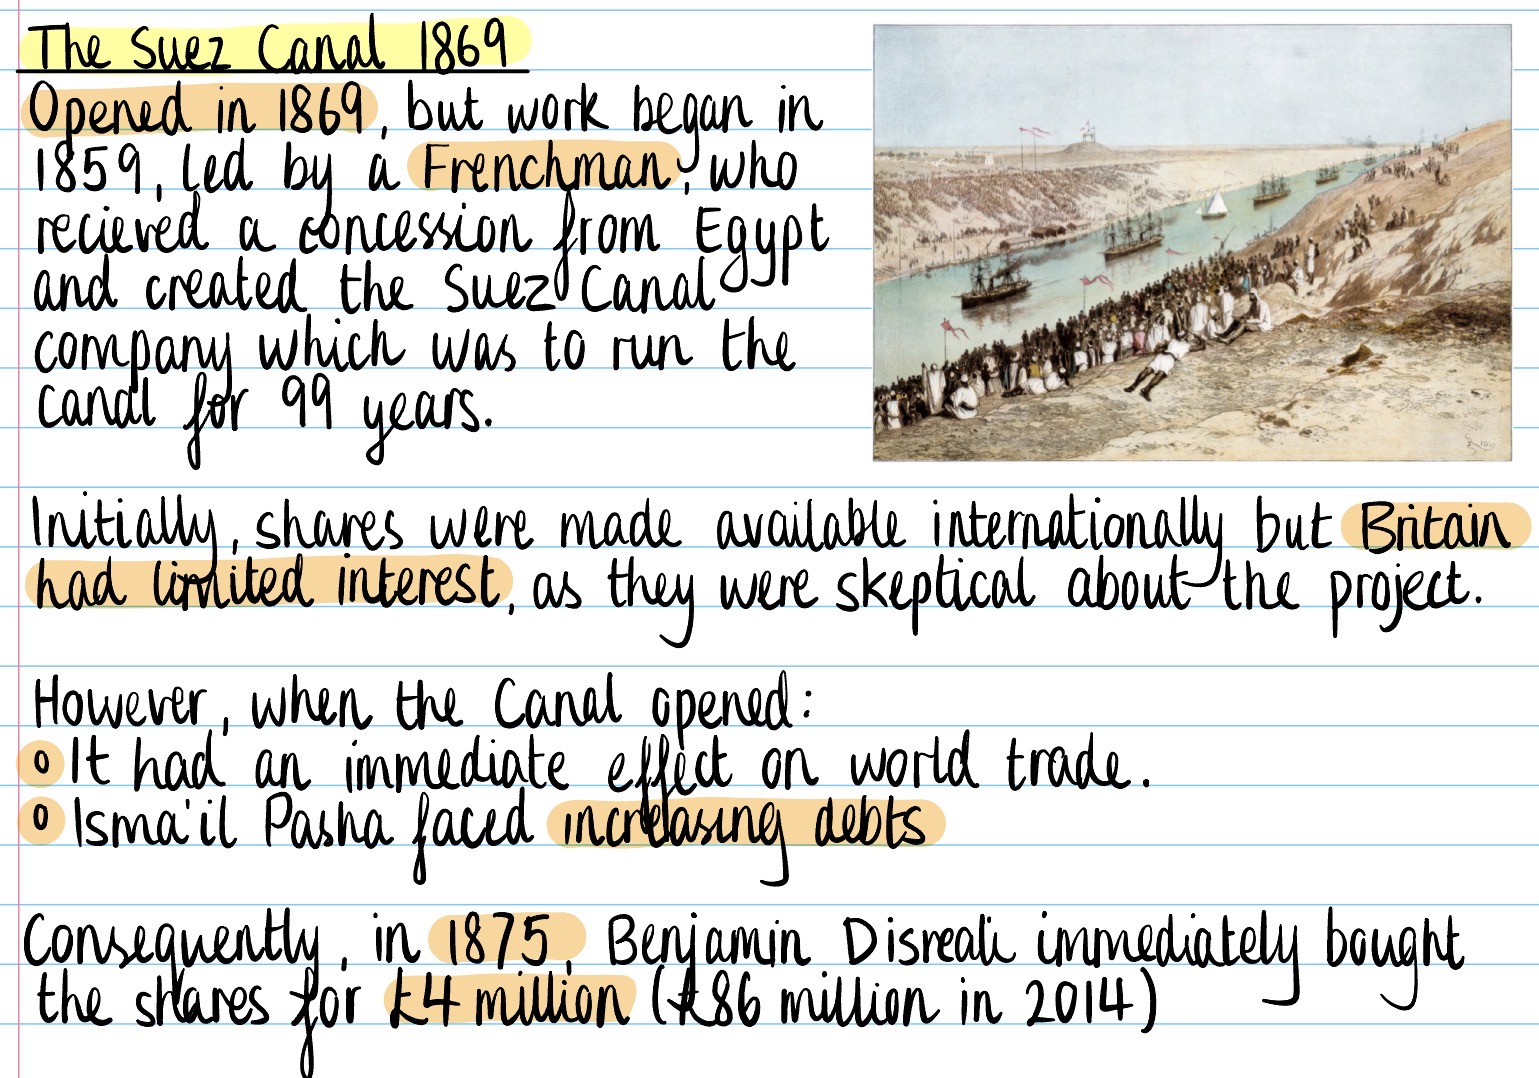 The Suez Canal 1869
Opened in 1869, but work began in
1859, led by a Frenchman, who
recieved a concession from Egypt
and created the Suez Canal
company which was to run the
canal for 99 years.
Initially, shares were made available internationally but Britain
had limited interest, as they were skeptical about the project.
However, when the Canal opened:
o It had an immediate effect on world trade.
o Isma'il Pasha faced increasing debts
Consequently, in 1875, Benjamin Disreali immediately bought
the shares for £4 million (£86 million in 2014)